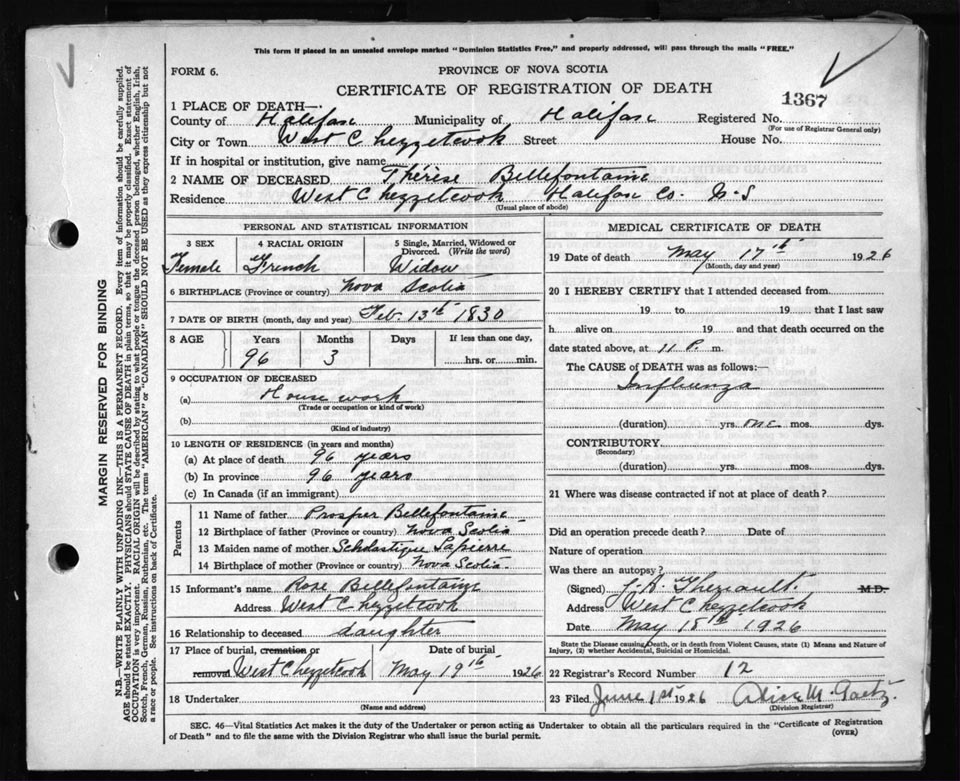 This form if placed in an unsealed envelope marked "Dominion Statistics Free," and properly addressed, will pass through the mails "FREE."
FORM 6.
PROVINCE OF NOVA SCOTIA
CERTIFICATE OF REGISTRATION OF DEATH
1367
1 PLACE OF DEATH—
County of Halifax Municipality of Halifax Registered No.
(For use of Registrar General only)
City or Town West Chezzetcook Street House No.
If in hospital or institution, give name
2 NAME OF DECEASED Thérèse Bellefontaine
Residence West Chezzetcook Halifax Co. N-S
(Usual place of abode)
PERSONAL AND STATISTICAL INFORMATION
3 SEX 4 RACIAL ORIGIN 5 Single, Married, Widowed or Divorced. (Write the word)
Female French Widow
6 BIRTHPLACE (Province or country) Nova Scotia
7 DATE OF BIRTH (month, day and year) Feb. 13th 1830
8 AGE Years Months Days If less than one day,
96 3 hrs. or min.
9 OCCUPATION OF DECEASED
(a) House work
(Trade or occupation or kind of work)
(b)
(Kind of industry)
10 LENGTH OF RESIDENCE (in years and months)
(a) At place of death 96 years
(b) In province 96 years
(c) In Canada (if an immigrant)
Parents
11 Name of father Prosper Bellefontaine
12 Birthplace of father (Province or country) Nova Scotia
13 Maiden name of mother Scholastique Lapierre
14 Birthplace of mother (Province or country) Nova Scotia
15 Informant's name Rose Bellefontaine
Address West Chezzetcook
16 Relationship to deceased daughter
17 Place of burial, cremation or Date of burial
removal West Chezzetcook May 19th 1926
18 Undertaker
(Name and address)
MEDICAL CERTIFICATE OF DEATH
19 Date of death May 17th 1926
(Month, day and year)
20 I HEREBY CERTIFY that I attended deceased from
19 to 19 that I last saw
h alive on 19 and that death occurred on the
date stated above, at 11 P. m.
The CAUSE of DEATH was as follows:—
Influenza
(duration) yrs. one mos. dys.
CONTRIBUTORY.
(Secondary)
(duration) yrs. mos. dys.
21 Where was disease contracted if not at place of death?
Did an operation precede death? Date of
Nature of operation
Was there an autopsy?
(Signed) Theriault. M.D.
Address West Chezzetcook
Date May 18th 1926
State the Disease causing Death, or in death from Violent Causes, state (1) Means and Nature of
Injury, (2) whether Accidental, Suicidal or Homicidal.
22 Registrar's Record Number 12
23 Filed June 1st 1926 Alice M. Gaetz.
(Division Registrar)
SEC. 46—Vital Statistics Act makes it the duty of the Undertaker or person acting as Undertaker to obtain all the particulars required in the "Certificate of Registration
of Death" and to file the same with the Division Registrar who shall issue the burial permit.
(OVER)
MARGIN RESERVED FOR BINDING
N.B.—WRITE PLAINLY WITH UNFADING INK—THIS IS A PERMANENT RECORD. Every item of information should be carefully supplied.
AGE should be stated EXACTLY. PHYSICIANS should STATE CAUSE OF DEATH in plain terms, so that it may be properly classified. Exact statement of
OCCUPATION is very important. RACIAL ORIGIN will be described by stating to what people or tongue the deceased person belonged, whether English, Irish,
Scotch, French, German, Russian, Ruthenian, etc. The terms "AMERICAN" or "CANADIAN" SHOULD NOT BE USED as they express citizenship but not
a race or people. See instructions on back of Certificate.